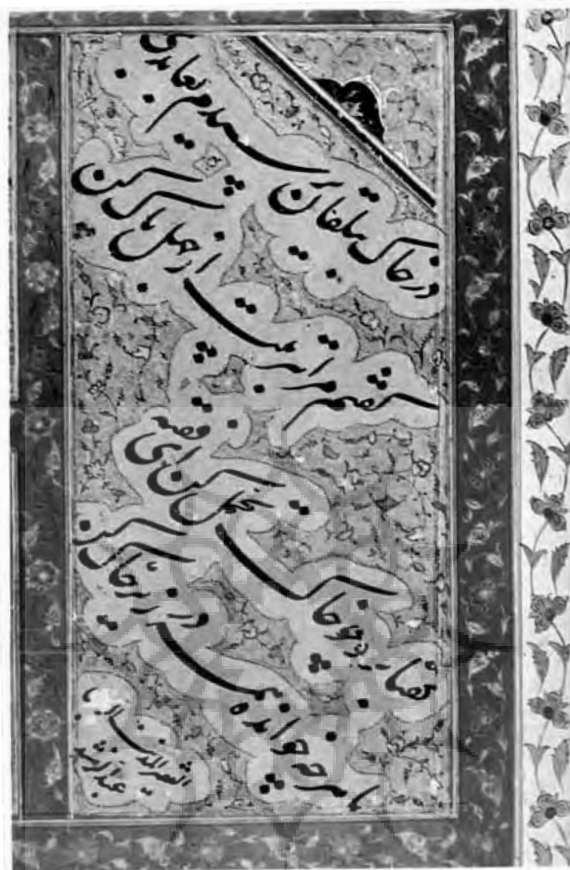 در خاک بیلقان برسیدم بعابدی
گفتم مرا بتربیت از جهل پاک کن
گفتا برو چو خاک تحمل کن ای فقیه
یا هر چه خوانده همه در زیر خاک کن
الفقیر المذنب
عبدالرشید